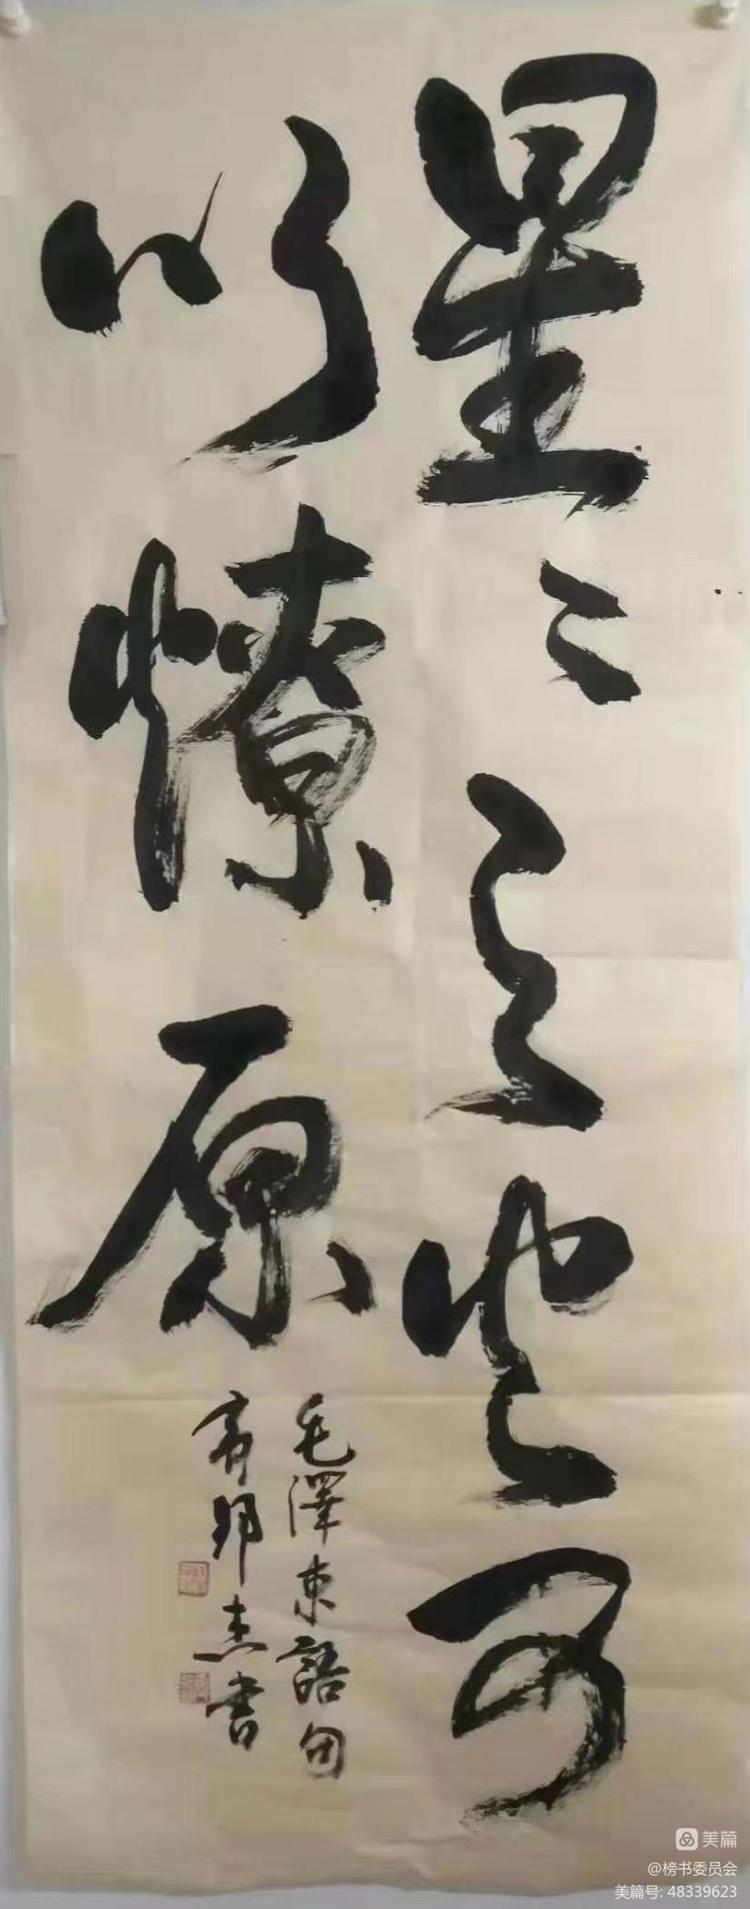 星〻之火可
以燎原
毛澤東語句
高邦杰書
美篇
@榜书委员会
美篇号: 48339623